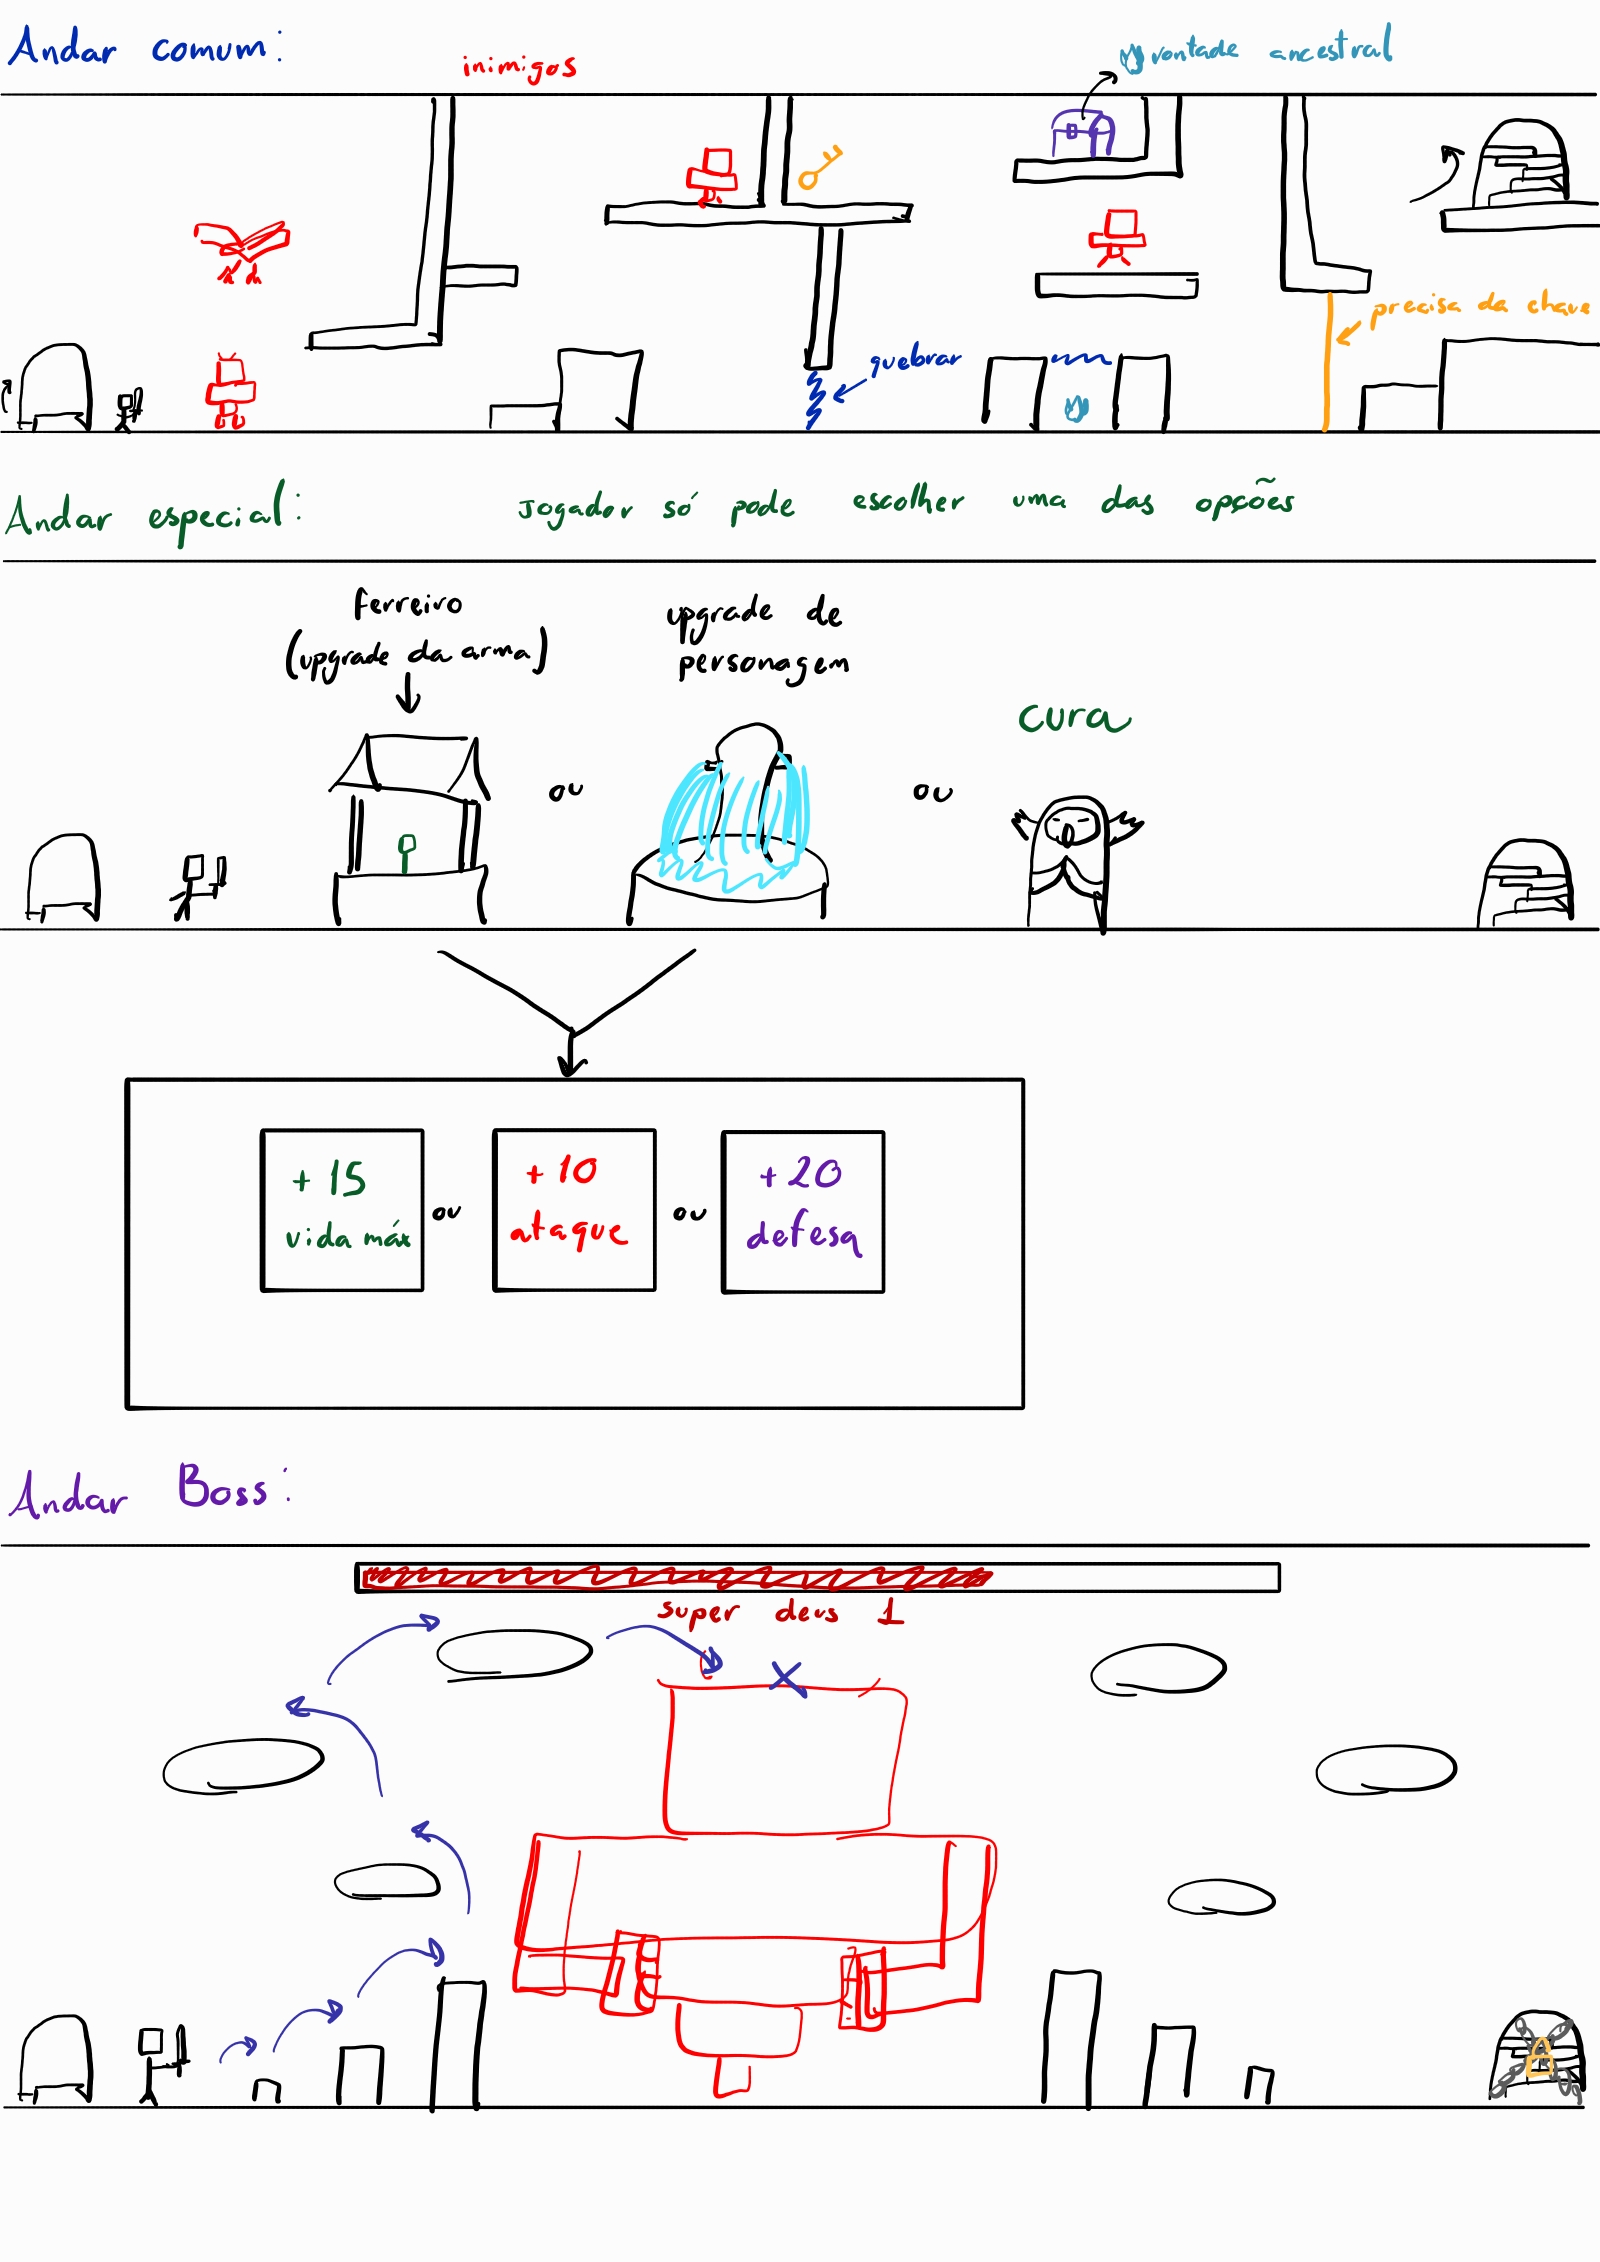 Andar comum:
inimigos
vontade ancestral
precisa da chave
quebrar
Andar especial:
Jogador só pode escolher uma das opções
ferreiro
(upgrade da arma)
upgrade de
personagem
cura
ou
ou
+ 15
vida máx
ou
+ 10
ataque
ou
+ 20
defesa
Andar Boss:
super deus 1